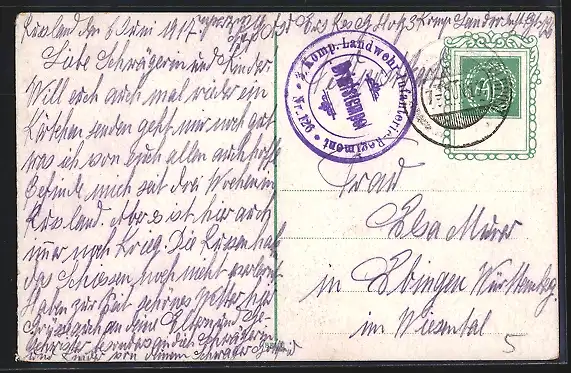 Russland den 6 Juni 1917
Liebe Schwägerin und Kinder
Will euch auch mal wieder ein
Kärtchen senden geht mir noch gut
was ich von euch allen auch hoffe
befinde mich seit drei Wochen in
Russland. Aber es ist hier auch
nur noch Krieg. Die Russen hab
das Schiesen noch nicht verlernt
Haben zur Zeit schönes Wetter hier
Grüsse auch an deine Eltern und Ge-
schwister besonders an dich Schwägerin
und Kinder von deinem Schwager
3 Komp.
3. Komp. Landwehr-Infanterie-Regiment Nr. 126
Briefstempel
Frau
Elsa Maurer
in Ebingen Württembg.
im Wiesental
5